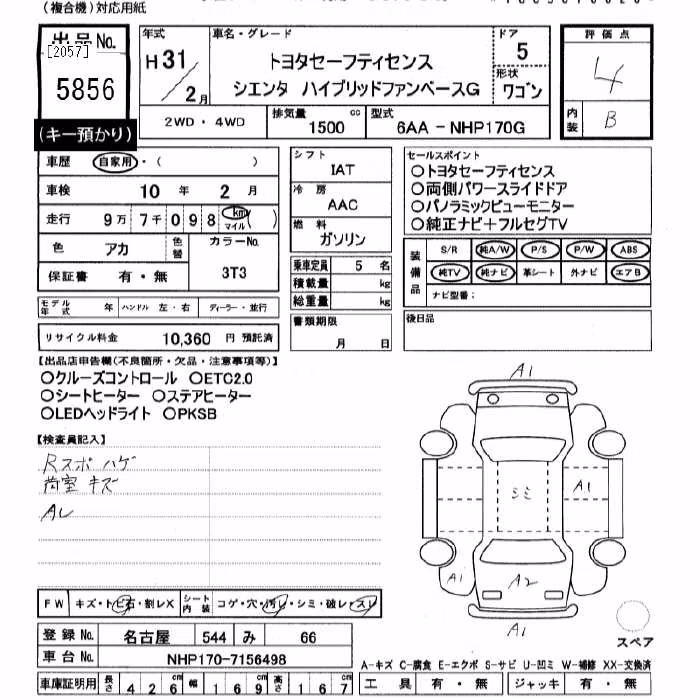 (複合機)対応用紙
出品No.
[2057]
5856
(キー預かり)
年式
H31/2月
車名・グレード
トヨタセーフティセンス
シエンタ ハイブリッドファンベースG
ドア
5
形状
ワゴン
評価点
4
内装
B
2WD・4WD
排気量
1500 cc
型式
6AA-NHP170G
車歴 自家用・( )
車検 10年 2月
走行 9万7千098 km マイル ( )
色 アカ 色替
カラーNo.
3T3
保証書 有・無
モデル年式 年 ハンドル 左・右 ディーラー・並行
リサイクル料金 10,360円 預託済
シフト
IAT
冷房
AAC
燃料
ガソリン
乗車定員 5名
積載量 kg
総重量 kg
書類期限
月 日
セールスポイント
○トヨタセーフティセンス
○両側パワースライドドア
○パノラミックビューモニター
○純正ナビ+フルセグTV
装備品
S/R 純A/W P/S P/W ABS
純TV 純ナビ 革シート 外ナビ エアB
ナビ型番:
後日品
【出品店申告欄(不良箇所・欠品・注意事項等)】
○クルーズコントロール ○ETC2.0
○シートヒーター ○ステアヒーター
○LEDヘッドライト ○PKSB
【検査員記入】
Rスポ ハゲ
荷室 キズ
AL
A1
シミ
A1
A1
A2
A1
スペア
FW キズ・トビ石・割レX シート内装 コゲ・穴・汚レ・シミ・破レ・スレ
登録No. 名古屋 544 み 66
車台No. NHP170-7156498
車庫証明用 長さ 426cm 幅 169cm 高さ 167cm
A-キズ C-腐食 E-エクボ S-サビ U-凹ミ W-補修 XX-交換済
工具 有・無 ジャッキ 有・無